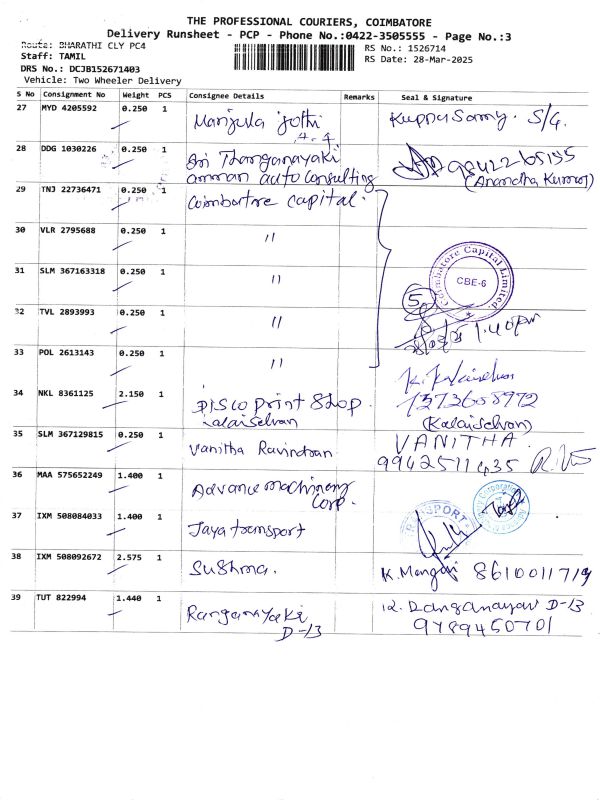 THE PROFESSIONAL COURIERS, COIMBATORE
Delivery Runsheet - PCP - Phone No.:0422-3505555 - Page No.:3
Route: BHARATHI CLY PC4
RS No.: 1526714
Staff: TAMIL
RS Date: 28-Mar-2025
DRS No.: DCJB152671403
Vehicle: Two Wheeler Delivery
S No Consignment No Weight PCS Consignee Details Remarks Seal & Signature
27 MYD 4205592 0.250 1 Manjula Jothi Kuppusamy. S/G.
28 DDG 1030226 0.250 1 Sri Thanganayaki 98422-65155
amman auto consulting (Anandha Kumar)
29 TNJ 22736471 0.250 1 Coimbatore capital.
30 VLR 2795688 0.250 1 "
Coimbatore Capital Limited.
CBE-6
31 SLM 367163318 0.250 1 "
5
32 TVL 2893993 0.250 1 "
1.40pm
33 POL 2613143 0.250 1 "
K. Kalaiselvan
34 NKL 8361125 2.150 1 DISCO print shop. 7373658972
Kalaiselvan (Kalaiselvan)
35 SLM 367129815 0.250 1 Vanitha Ravindran VANITHA.
9942511435
36 MAA 575652249 1.400 1 Advance machinery
Corp.
37 IXM 508084033 1.400 1 Jaya transport
38 IXM 508092672 2.575 1 Sushma. K. Mangai 8610011719
39 TUT 822994 1.440 1 Ranganayaki D-13
D-13 9789450701